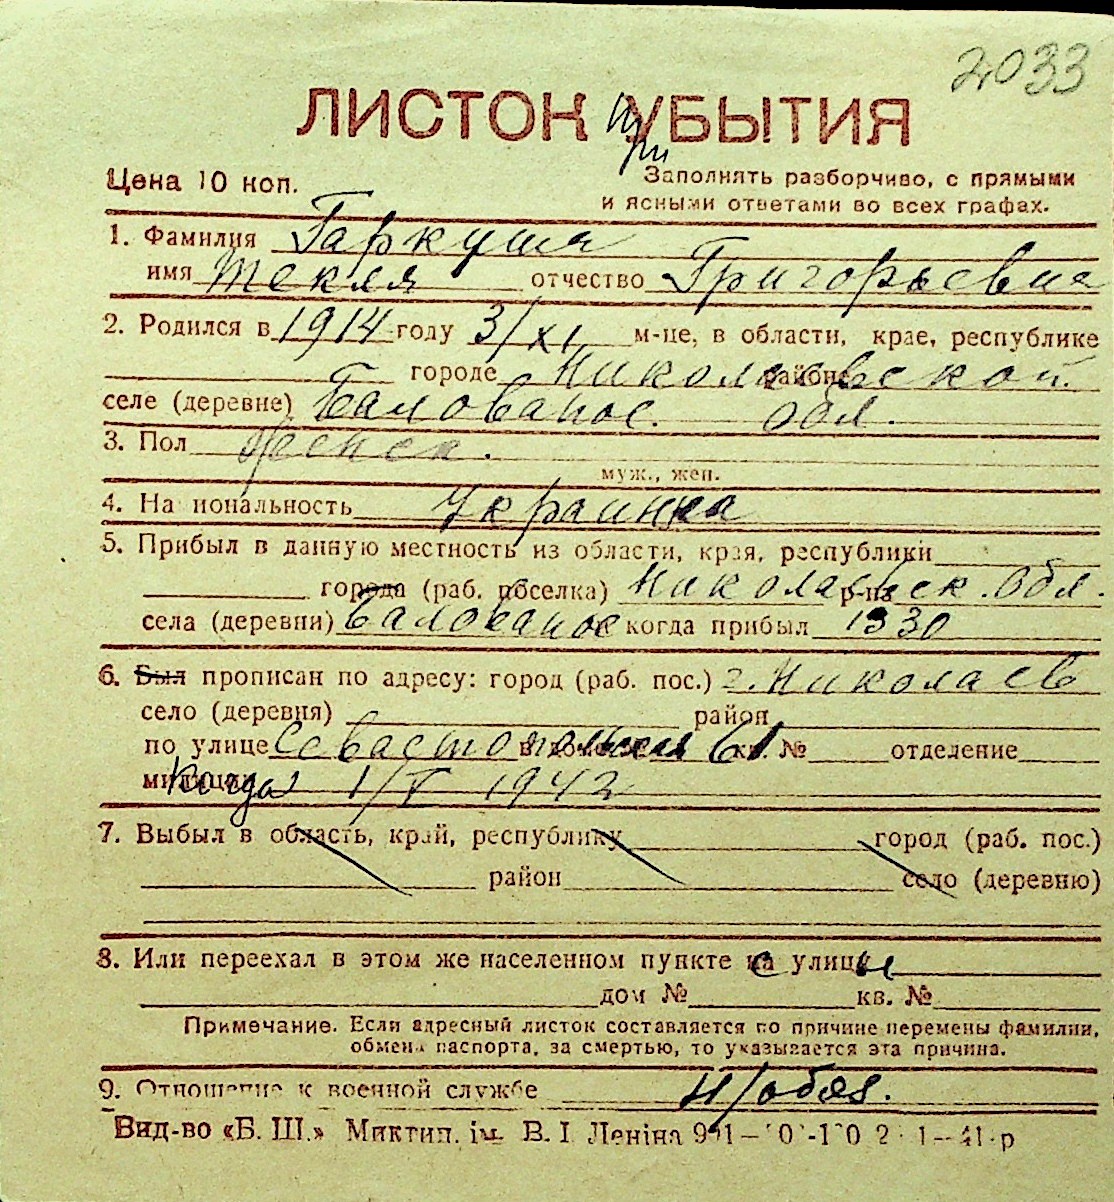 2033
ЛИСТОК УБЫТИЯ
При
Цена 10 коп.
Заполнять разборчиво, с прямыми
и ясными ответами во всех графах.
1. Фамилия Гаркуша
имя Текля отчество Григорьевна
2. Родился в 1914 году 3/XI м-це, в области, крае, республике
городе Николаевской районе
селе (деревне) Балованое. обл.
3. Пол женск.
муж., жен.
4. На иональность Украинка
5. Прибыл в данную местность из области, края, республики
города (раб. поселка) Николаевск. обл. р-на
села (деревни) Балованое когда прибыл 1930
6. Был прописан по адресу: город (раб. пос.) г. Николаев
село (деревня) район
по улице Севастопольская 61 кв. № отделение
милиции Когда 1/V 1942
7. Выбыл в область, край, республику город (раб. пос.)
район село (деревню)
8. Или переехал в этом же населенном пункте с улицы
дом № кв. №
Примечание. Если адресный листок составляется по причине перемены фамилии,
обмена паспорта, за смертью, то указывается эта причина.
9. Отношение к военной службе н/обяз.
Вид-во «Б. Ш.» Миктип. ім. В. І Леніна